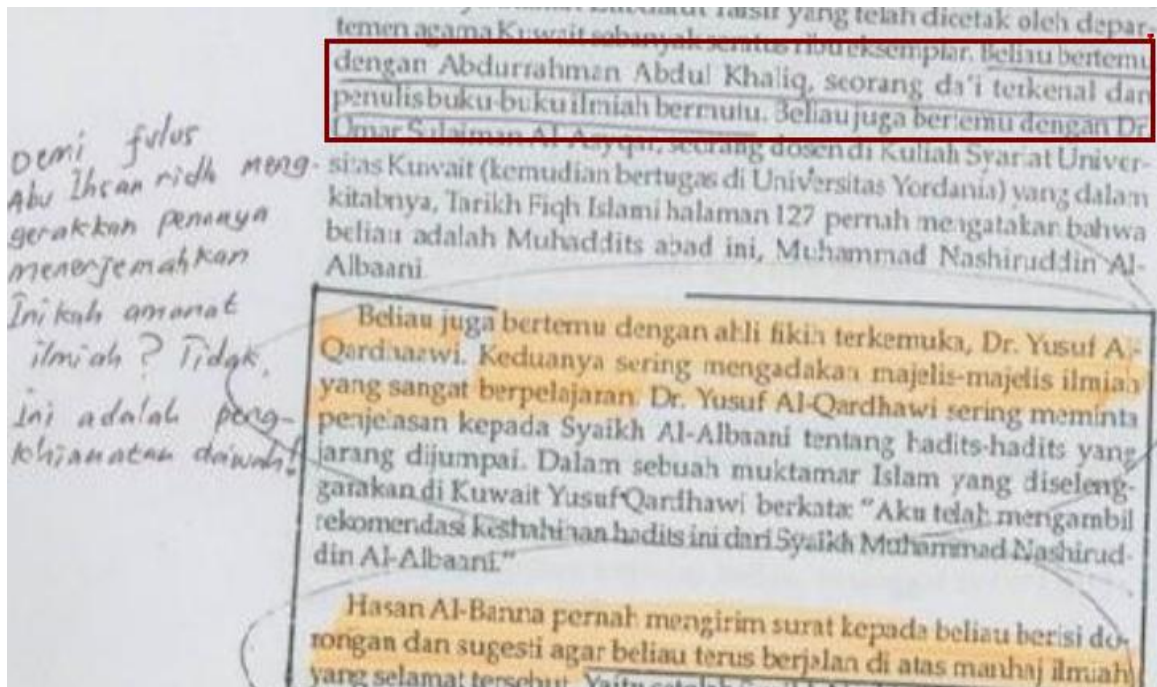 yang telah dicetak oleh depar-
temen agama Kuwait sebanyak seratus ribu eksemplar. Beliau bertemu
dengan Abdurrahman Abdul Khaliq, seorang da'i terkenal dan
penulis buku-buku ilmiah bermutu. Beliau juga bertemu dengan Dr.
Umar Sulaiman Al-Asyqar, seorang dosen di Kuliah Syari'at Univer-
sitas Kuwait (kemudian bertugas di Universitas Yordania) yang dalam
kitabnya, Tarikh Fiqh Islami halaman 127 pernah mengatakan bahwa
beliau adalah Muhaddits abad ini, Muhammad Nashiruddin Al-
Albaani.
Beliau juga bertemu dengan ahli fikih terkemuka, Dr. Yusuf Al-
Qardhaawi. Keduanya sering mengadakan majelis-majelis ilmiah
yang sangat berpelajaran. Dr. Yusuf Al-Qardhawi sering meminta
penjelasan kepada Syaikh Al-Albaani tentang hadits-hadits yang
jarang dijumpai. Dalam sebuah muktamar Islam yang diseleng-
garakan di Kuwait Yusuf Qardhawi berkata: "Aku telah mengambil
rekomendasi keshahihan hadits ini dari Syaikh Muhammad Nashirud-
din Al-Albaani."
Hasan Al-Banna pernah mengirim surat kepada beliau berisi do-
rongan dan sugesti agar beliau terus berjalan di atas manhaj ilmiah
yang selamat tersebut. Yaitu setelah
Demi fulus
Abu Ihsan ridh meng-
gerakkan penanya
menerjemahkan
Inikah amanat
ilmiah? Tidak,
ini adalah peng-
khianatan dakwah!